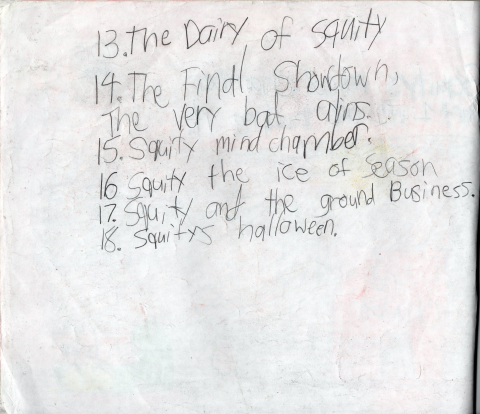 13. The Dairy of squity
14. The Final Showdown,
The very bat
15. Squity mind chamber.
16 Squity the ice of season
17. Squity and the ground Business.
18. Squitys halloween.